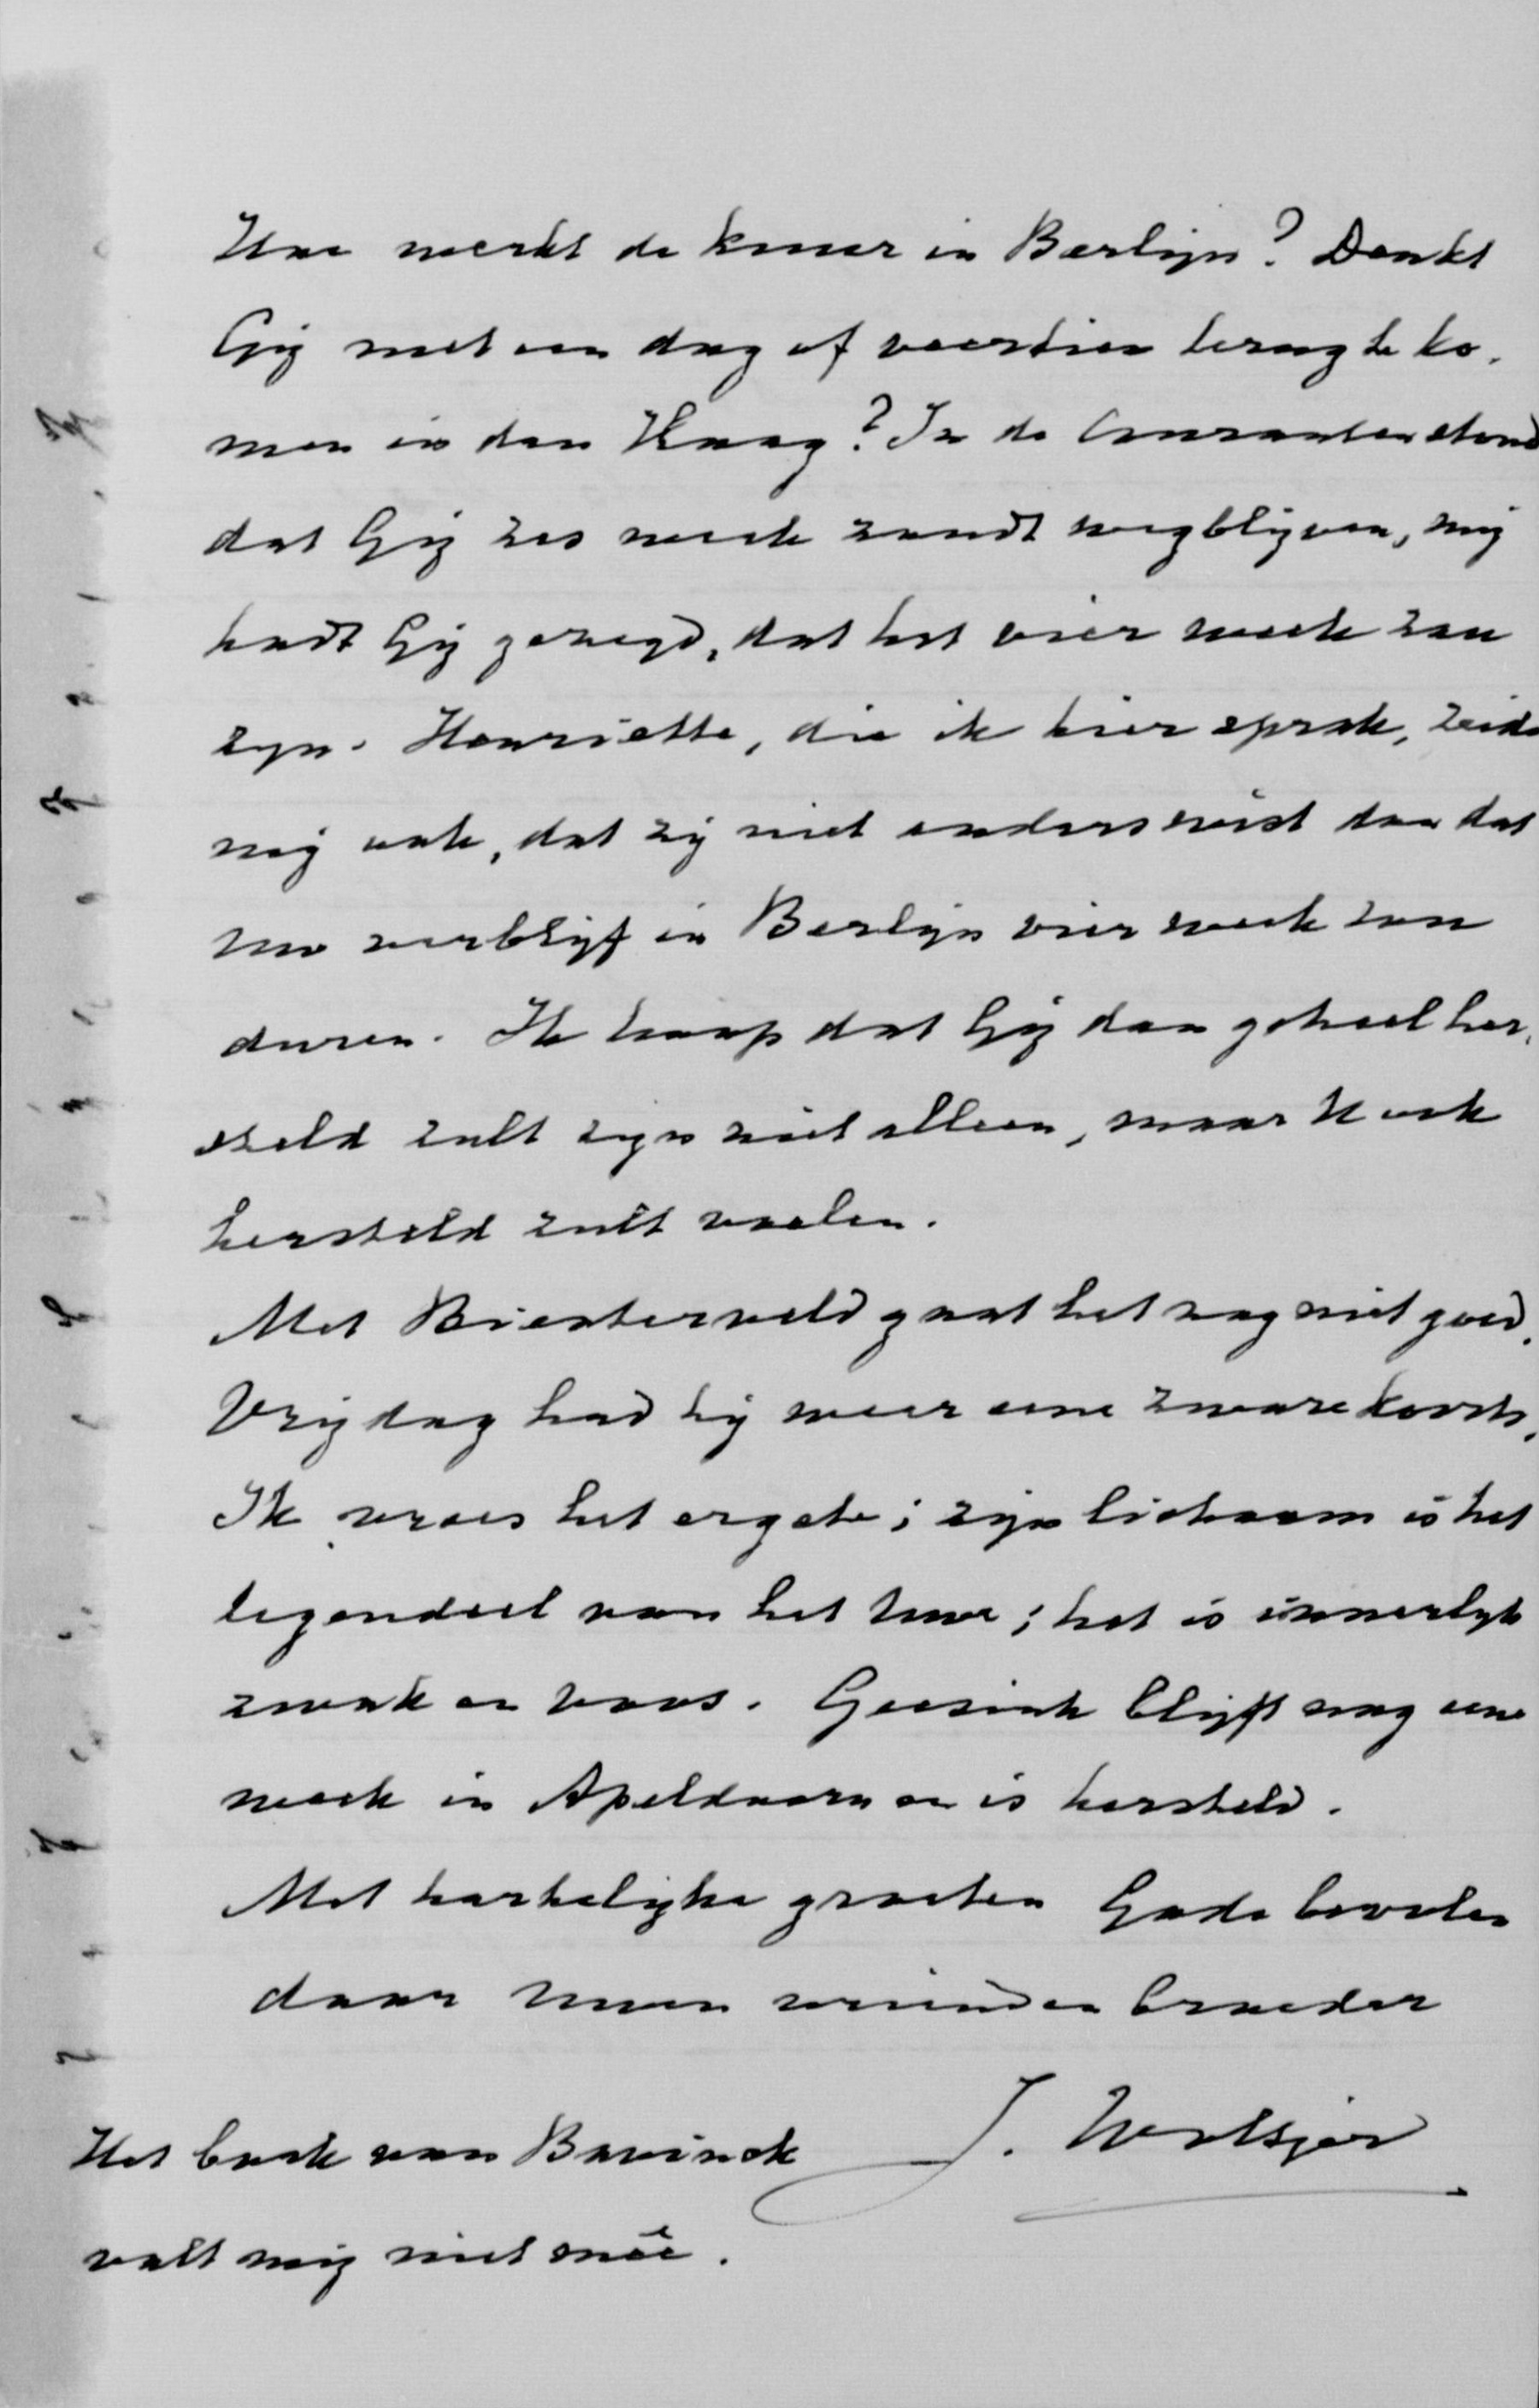 Hoe werkt de kuur in Berlijn? Denkt
Gij met een dag of veertien terug te ko-
men in den Haag? In de Couranten stond
dat Gij zes week zoudt wegblijven, mij
hadt Gij gezegd, dat het vier week zou
zyn. Henriëtte, die ik hier sprak, zeide
mij ook, dat zij niet anders wist dan dat
Uw verblijf in Berlijn vier week zou
duren. Ik hoop dat Gij dan geheel her-
steld zult zijn niet alleen, maar U ook
hersteld zult voelen.
Met Biesterveld gaat het nog niet goed.
Vrijdag had hij weer eene zware koorts.
Ik vrees het ergste; zijn lichaam is het
tegendeel van het Uwe; het is innerlijk
zwak en voos. Geesink blijft nog eene
week in Apeldoorn en is hersteld.
Met hartelijke groeten Gode bevolen
door Uwen vriend en broeder
J. Woltjer
Het boek van Bavinck
valt mij niet meê.